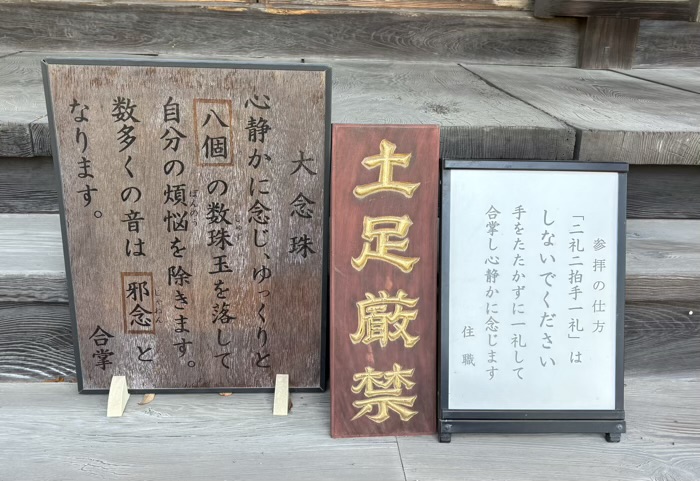 大念珠
心静かに念じ、ゆっくりと
八個の数珠玉を落して
自分の煩悩を除きます。
ぼんのう
数多くの音は邪念と
じゃねん
なります。
合掌
土足厳禁
参拝の仕方
「二礼二拍手一礼」は
しないでください
手をたたかずに一礼して
合掌し心静かに念じます
住職